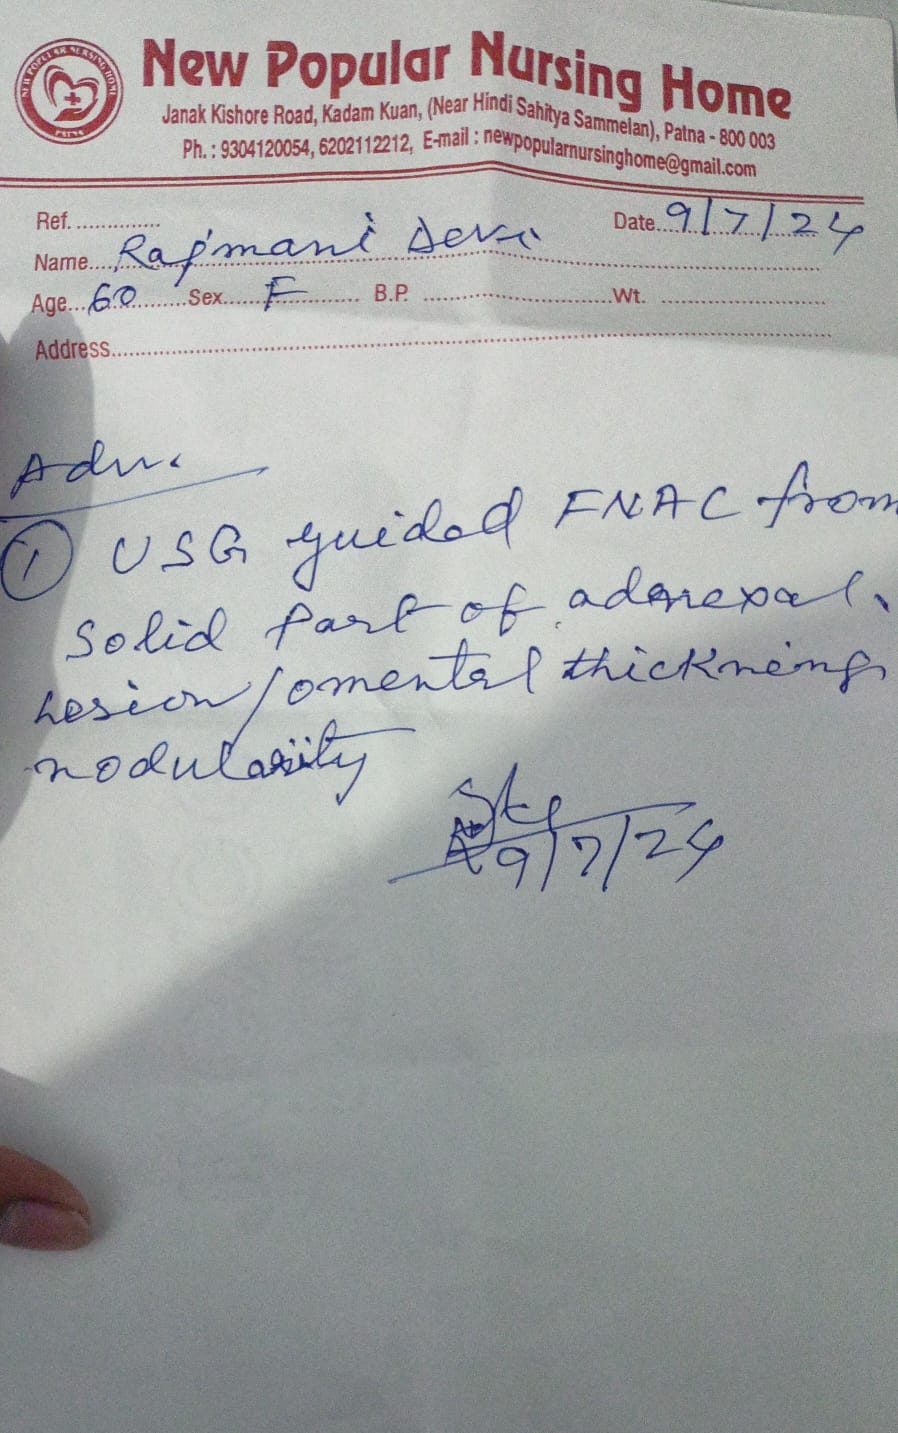 New Popular Nursing Home
Janak Kishore Road, Kadam Kuan, (Near Hindi Sahitya Sammelan), Patna - 800 003
Ph. : 9304120054, 6202112212, E-mail : newpopularnursinghome@gmail.com
NEW POPULAR NURSING HOME
PATNA
Ref. .............. Date...9/7/24
Name....Rajmani Devi
Age...60.........Sex......F............ B.P. ............................Wt. .........................
Address.....................................................................................
Adv.
① USG guided FNAC from
Solid Part of adnexal
Lesion/omental thickneing
nodularity
9/7/24